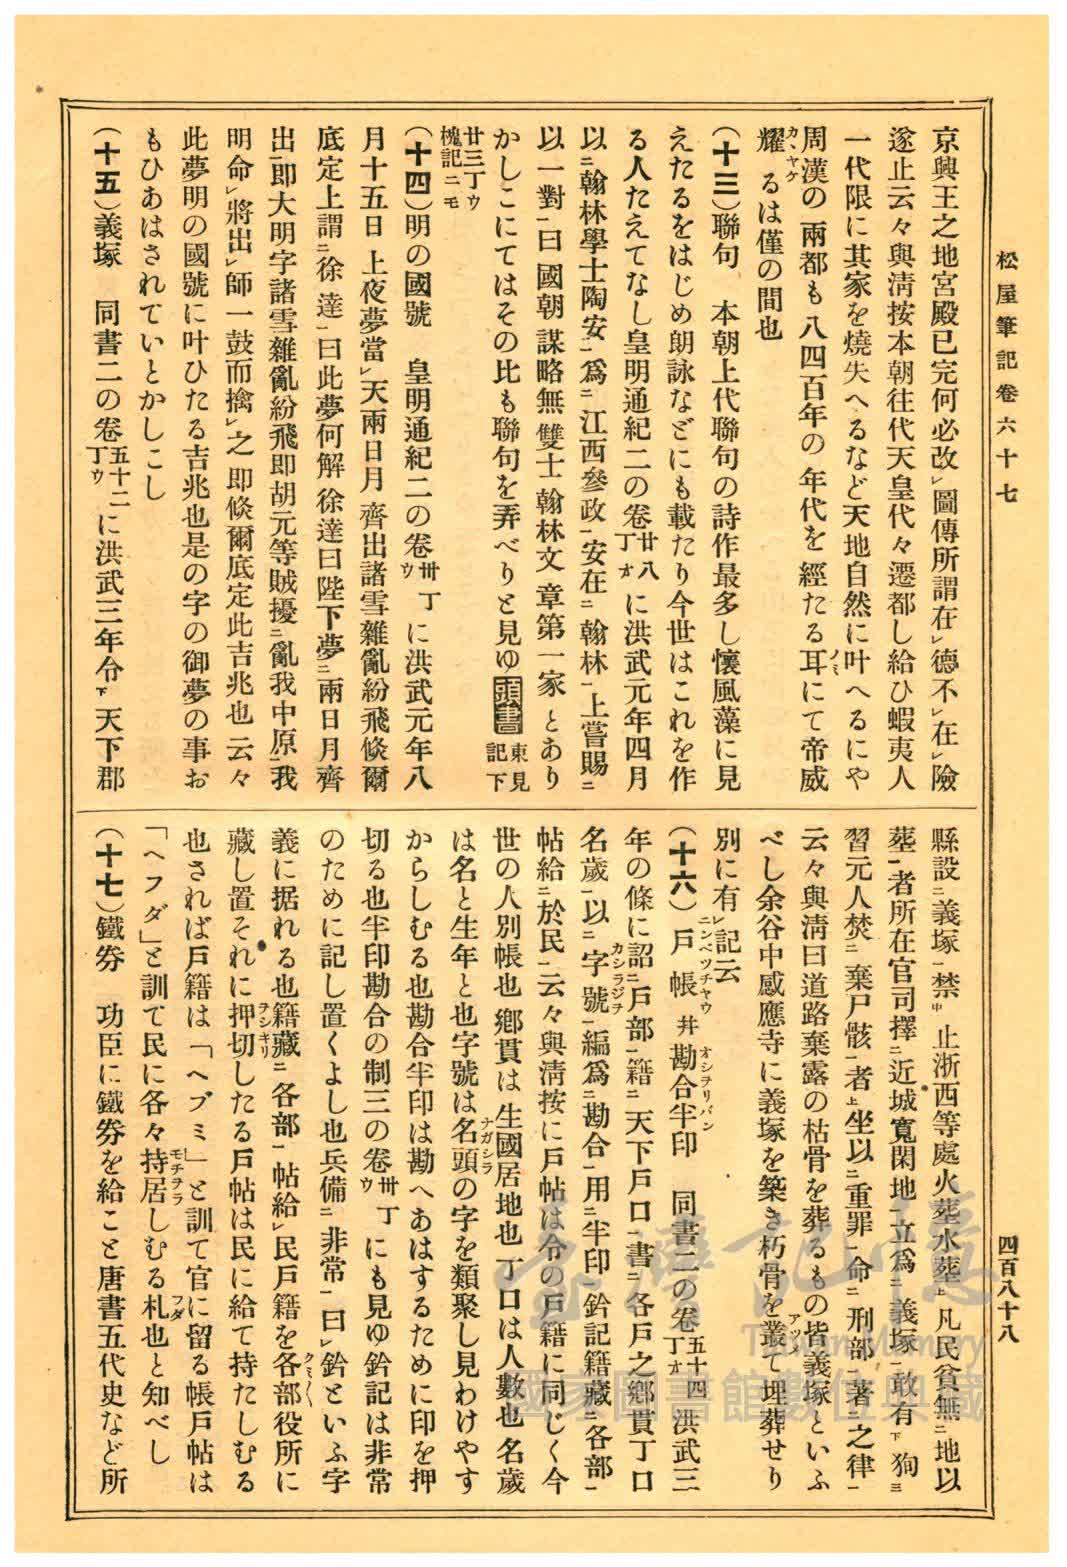 松屋筆記卷六十七
四百八十八
京興王之地宮殿已完何必改㆑圖傳所謂在㆑德不㆑在㆑險
遂止云々與淸按本朝往代天皇代々遷都し給ひ蝦夷人
一代限に其家を燒失へるなど天地自然に叶へるにや
周漢の兩都も八四百年の年代を經たる耳ノミにて帝威
耀カヽヤケるは僅の間也
(十三)聯句　本朝上代聯句の詩作最多し懷風藻に見
えたるをはじめ朗詠などにも載たり今世はこれを作
る人たえてなし皇明通紀二の卷廿八丁オに洪武元年四月
以㆓翰林學士陶安㆒爲㆓江西參政㆒安在㆓翰林㆒上嘗賜㆓
以一對㆒曰國朝謀略無雙士翰林文章第一家とあり
かしこにてはその比も聯句を弄べりと見ゆ頭書東見記下
廿三丁ウ槐記ニモ
(十四)明の國號　皇明通紀二の卷卅丁ウに洪武元年八
月十五日上夜夢當㆑天兩日月齊出諸雪雜亂紛飛倏爾
底定上謂㆓徐達㆒曰此夢何解徐達曰陛下夢㆓兩日月齊
出㆒即大明字諸雪雜亂紛飛即胡元等賊擾㆓亂我中原㆒我
明命㆑將出㆑師一鼓而擒㆑之即倏爾底定此吉兆也云々
此夢明の國號に叶ひたる吉兆也是の字の御夢の事お
もひあはされていとかしこし
(十五)義塚　同書二の卷五十二丁ウに洪武三年令㆘天下郡
縣設㆓義塚㆒禁㆗止浙西等處火葬水葬㆖凡民貧無㆓地以
葬㆒者所在官司擇㆓近城寬閑地㆒立爲㆓義塚㆒敢有㆘狗㆔
習元人焚㆓棄尸骸㆒者㆖坐以㆓重罪㆒命㆓刑部㆒著㆓之律㆒
云々與淸曰道路棄露の枯骨を葬るもの皆義塚といふ
べし余谷中感應寺に義塚を築き朽骨を叢アツメて埋葬せり
別に有㆑記云
(十六)戶帳ニンベツチャウ幷勘合半印オシヲリバン　同書二の卷五十四丁オ洪武三
年の條に詔㆓戶部㆒籍㆓天下戶口㆒書㆓各戶之鄉貫丁口
名歲㆒以㆓字號カシラジヲ㆒編爲㆓勘合㆒用㆓半印㆒鈐記籍藏㆓各部㆒
帖給㆓於民㆒云々與淸按に戶帖は令の戶籍に同じく今
世の人別帳也鄉貫は生國居地也丁口は人數也名歲
は名と生年と也字號は名頭ナガシラの字を類聚し見わけやす
からしむる也勘合半印は勘へあはするために印を押
切る也半印勘合の制三の卷卅丁ウにも見ゆ鈐記は非常
のために記し置くよし也兵備㆓非常㆒曰㆑鈐といふ字
義に据れる也籍藏㆓各部㆒帖給㆑民戶籍を各部クミ〳〵役所に
藏し置それに押切ヲシキリしたる戶帖は民に給て持たしむる
也されば戶籍は「ヘブミ」と訓て官に留る帳戶帖は
「ヘフダ」と訓て民に各々持居モチヲラしむる札フダ也と知べし
(十七)鐵券　功臣に鐵券を給こと唐書五代史など所
臺灣記憶
Taiwan Memory
國家圖書館數位典藏